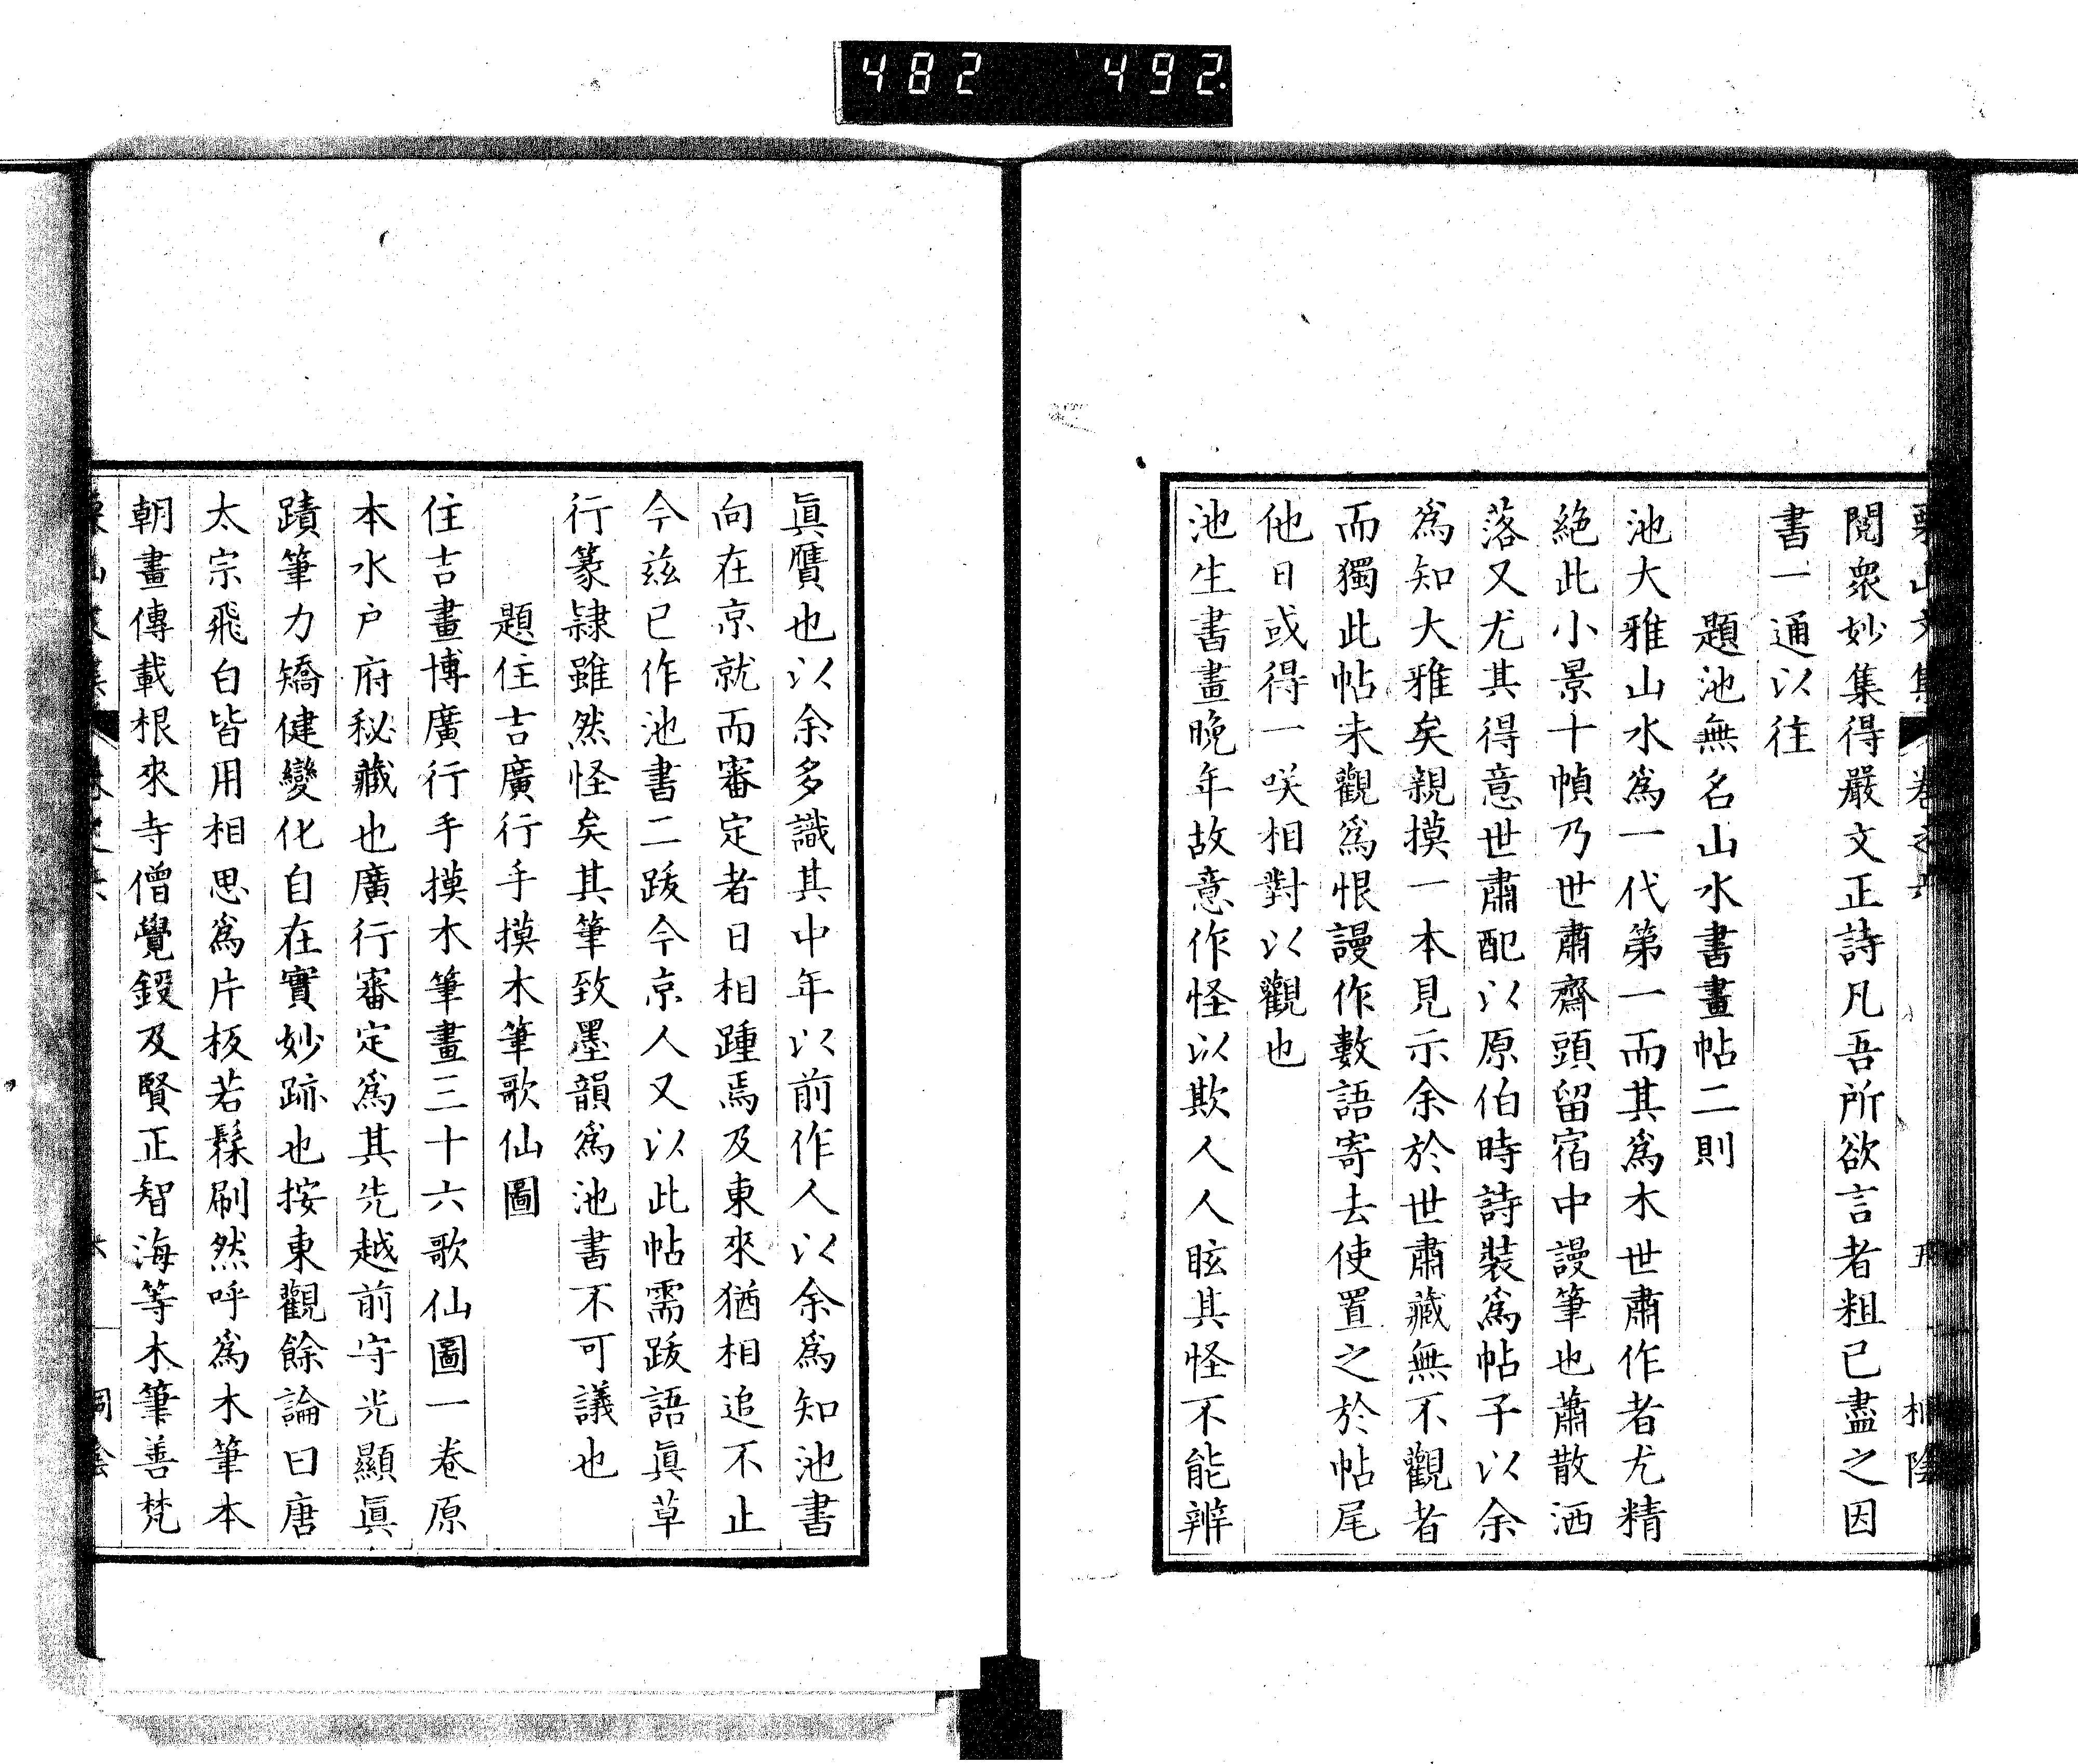 482 492.
閱衆妙集得嚴文正詩凡吾所欲言者粗已盡之因
書一通以往
題池無名山水書畫帖二則
池大雅山水爲一代第一而其爲木世肅作者尤精
絶此小景十幀乃世肅齋頭留宿中謾筆也蕭散洒
落又尤其得意世肅配以原伯時詩裝爲帖子以余
爲知大雅矣親摸一本見示余於世肅藏無不觀者
而獨此帖未觀爲恨謾作數語寄去使置之於帖尾
他日或得一咲相對以觀也
池生書畫晩年故意作怪以欺人人眩其怪不能辨
眞贋也以余多識其中年以前作人以余爲知池書
向在京就而審定者日相踵焉及東來猶相追不止
今玆已作池書二跋今京人又以此帖需跋語眞草
行篆隷雖然怪矣其筆致墨韻爲池書不可議也
題住吉廣行手摸木筆歌仙圖
住吉畫博廣行手摸木筆畫三十六歌仙圖一卷原
本水戶府秘藏也廣行審定爲其先越前守光顯眞
蹟筆力矯健變化自在實妙跡也按東觀餘論曰唐
太宗飛白皆用相思爲片板若髹刷然呼爲木筆本
朝畫傳載根來寺僧覺鍐及賢正智海等木筆善梵